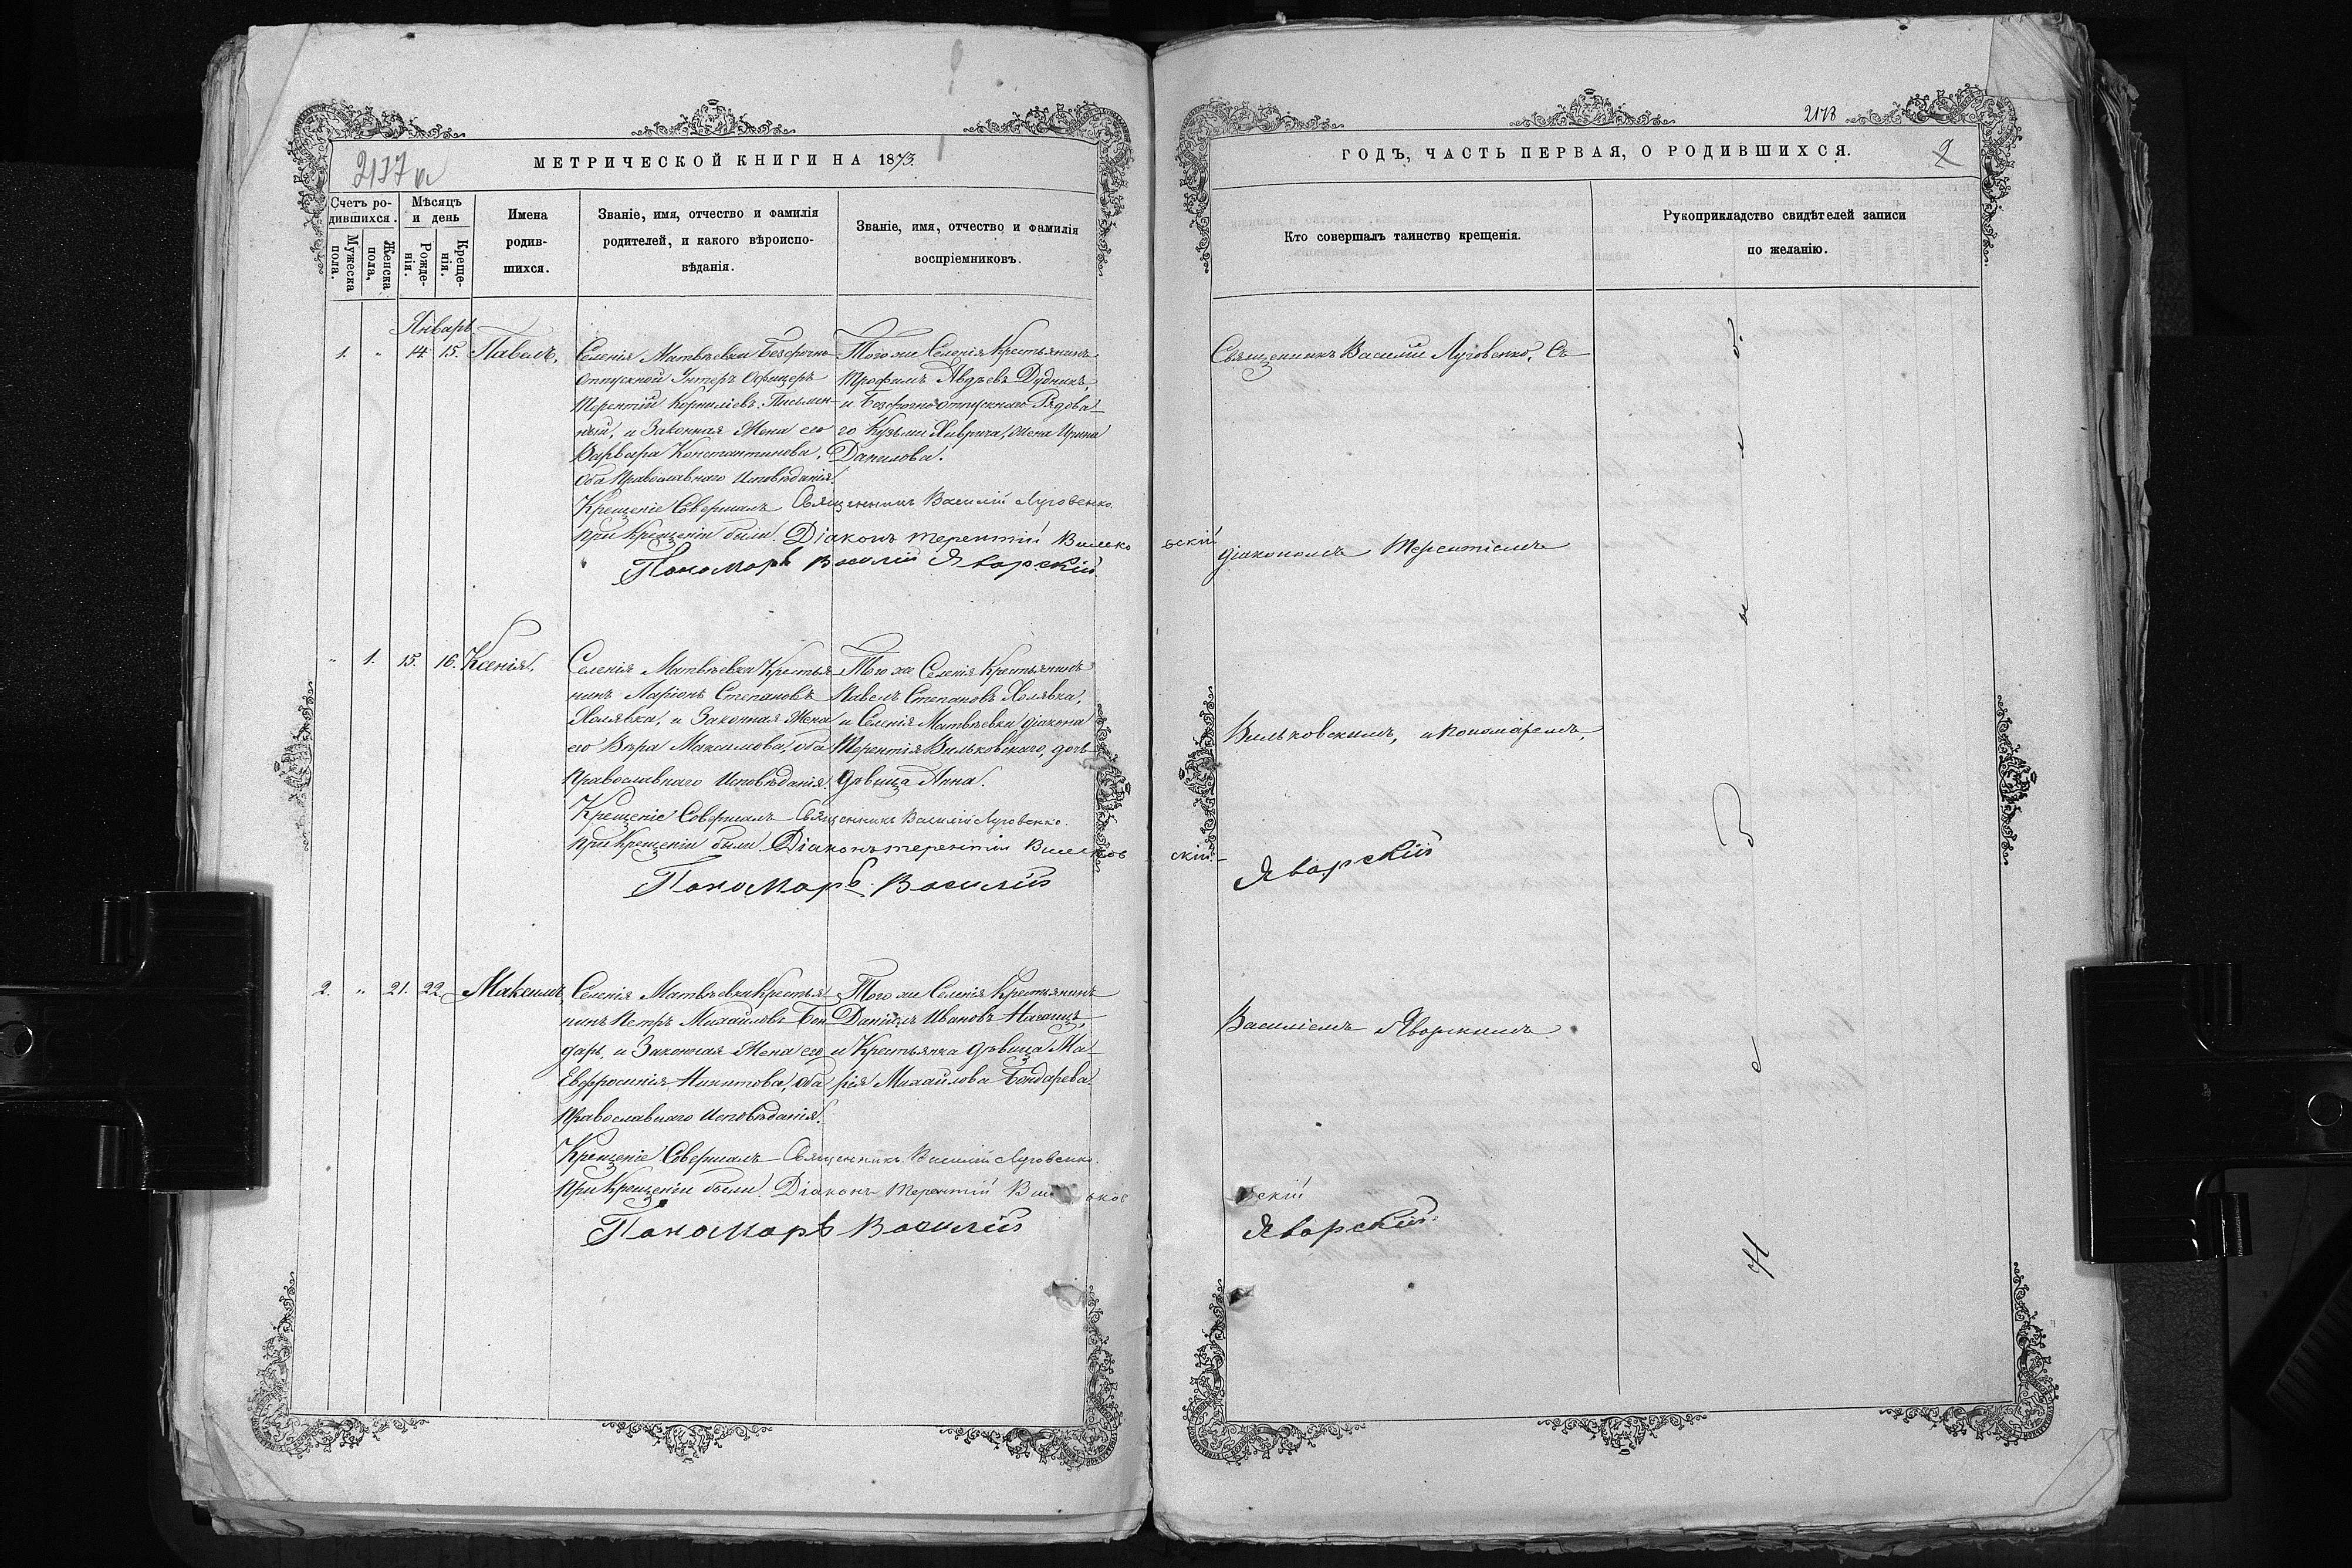 2177 а
МЕТРИЧЕСКОЙ КНИГИ НА 1873.
Счетъ ро-
дившихся.
Мужеска
пола.
Женска
пола,
Мѣсяцъ
и день
Рожде-
нія.
Креще-
нія.
Имена
родив-
шихся.
Званіе, имя, отчество и фамилія
родителей, и какого вѣроиспо-
вѣданія.
Званіе, имя, отчество и фамилія
воспріемниковъ.
Январь
1. " 14. 15. Павелъ,
Селенія Матвѣевки Безсрочно
отпускной Унтеръ Офицеръ
Терентій Корниліевъ Письмен-
ный, и Законная Жена его
Варвара Константинова,
оба Православнаго Исповѣданія.
Того же Селенія Крестьянинъ
Трофимъ Авдѣевъ Дудникъ,
и Безсрочно отпускнаго Рядова-
го Кузьмы Хиврича, Жена Ирина
Данилова.
Крещеніе Совершалъ Священникъ Василій Луговенко.
При Крещеніи были: Діаконъ Терентій Вилько
вскій
Пономарь Василій Яворскій
" 1. 15. 16. Ксенія,
Селенія Матвѣевки Крестья
нинъ Ларіонъ Степановъ
Холявка, и Законная Жена
его Вѣра Максимова, оба
Православнаго Исповѣданія.
Того же Селенія Крестьянинъ
Павелъ Степановъ Холявка,
и Селенія Матвѣевки діакона
Терентія Вильковскаго, дочь
дѣвица Анна.
Крещеніе Совершалъ Священникъ Василій Луговенко.
При Крещеніи были: Діаконъ Терентій Вильков
скій
Пономарь Василій
Яворскій
2. " 21. 22. Максимъ,
Селенія Матвѣевки Крестья
нинъ Петръ Михайловъ Бон
дарь, и Законная Жена его
Евфросинія Никитова, оба
Православнаго Исповѣданія.
Того же Селенія Крестьянинъ
Даніилъ Ивановъ
и Крестьянка дѣвица Ма-
рія Михайлова Бондарева.
Крещеніе Совершалъ Священникъ Василій Луговенко.
При Крещеніи были: Діаконъ Терентій
вскій
Пономарь Василій
Яворскій
2178
ГОДЪ, ЧАСТЬ ПЕРВАЯ, О РОДИВШИХСЯ.
2
Кто совершалъ таинство крещенія.
Рукоприкладство свидѣтелей записи
по желанію.
Священникъ Василій Луговенко, Съ
діакономъ Терентіемъ
Вильковскимъ, и пономаремъ,
Василіемъ Яворскимъ.